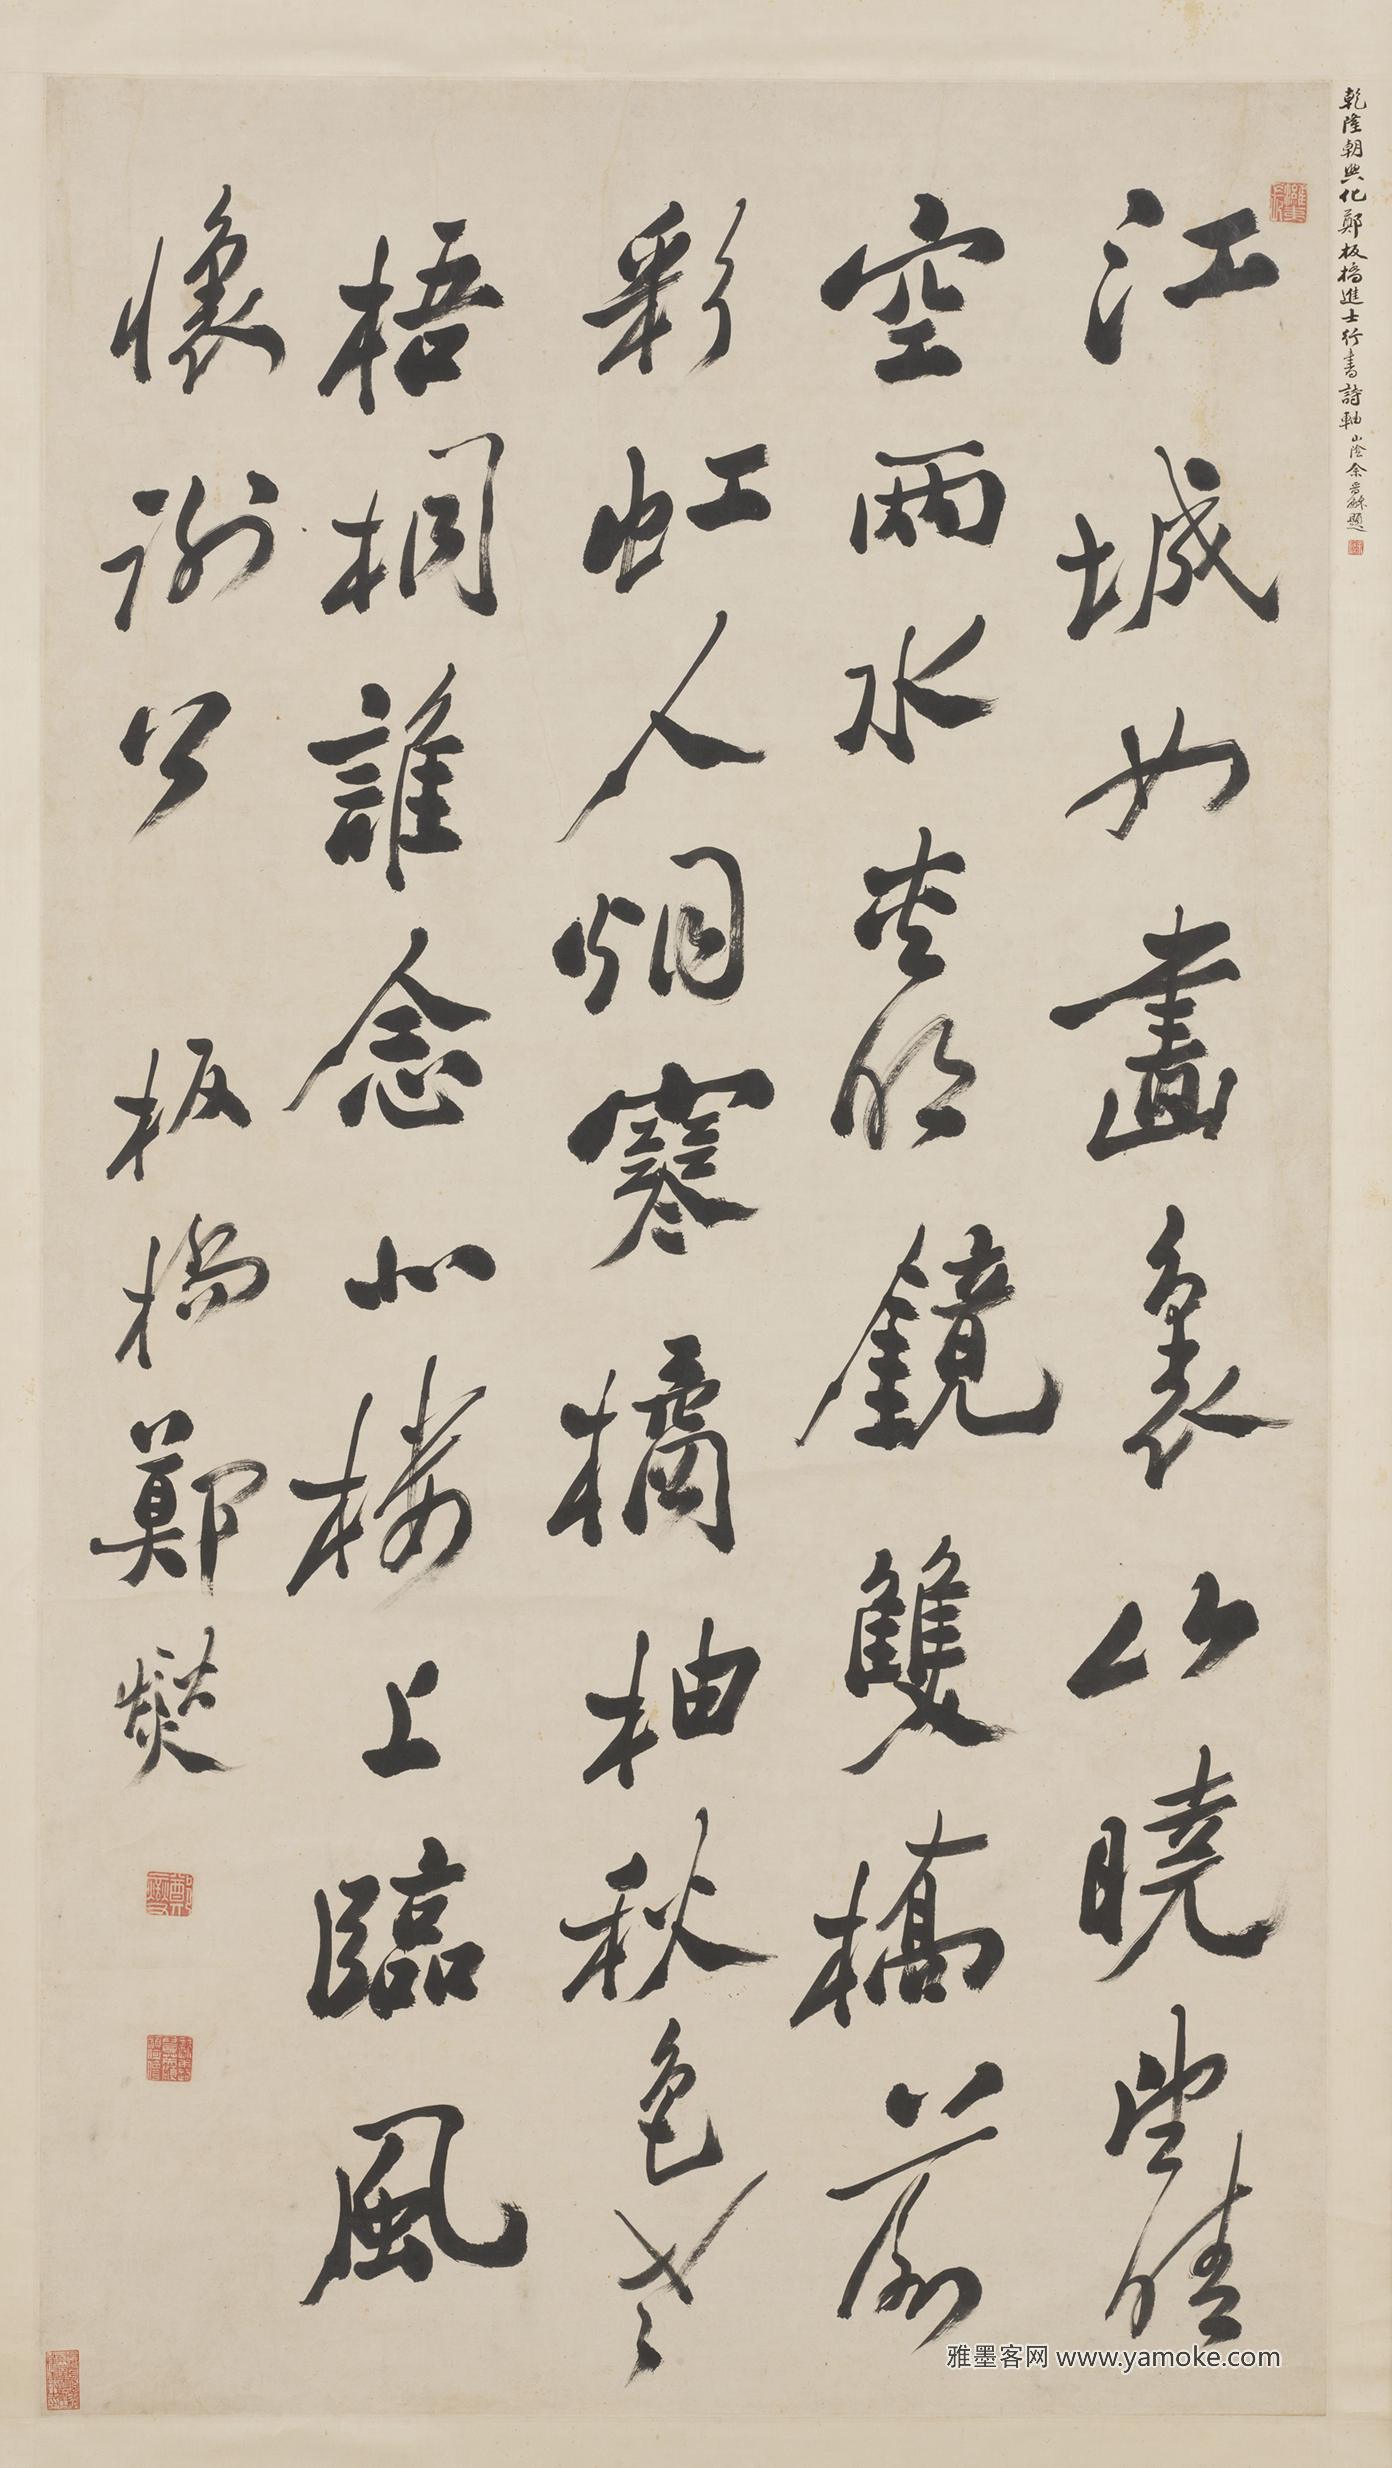 乾隆朝興化鄭板橋進士行書詩軸 山陰余晉龢題
江城如畫裏山曉望晴
空兩水夾明鏡雙橋落
彩虹人烟寒橘柚秋色老
梧桐誰念北樓上臨風
懷謝公 板橋鄭燮
雅墨客网 www.yamoke.com